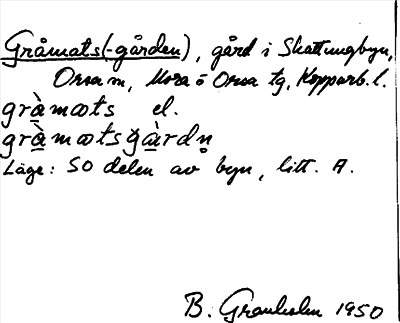 Gråmats(-gården), gård i Skattungbyn,
Orsa sn, Mora o Orsa tg, Kopparb. l.
grà̱mωts el.
grà̱mωtsgà̱rdn̥
Läge: SO delen av byn, litt. A.
B. Granholm 1950